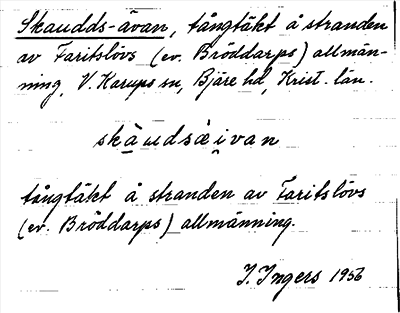 Skaudds-åvan, tångtäkt å stranden
av Faritslövs (ev. Bröddarps) allmän-
ning, V. Karups sn, Bjäre hd, Krist. län.
skàudsæ̀ivan
tångtäkt å stranden av Faritslövs
(ev. Bröddarps) allmänning.
I. Ingers 1956